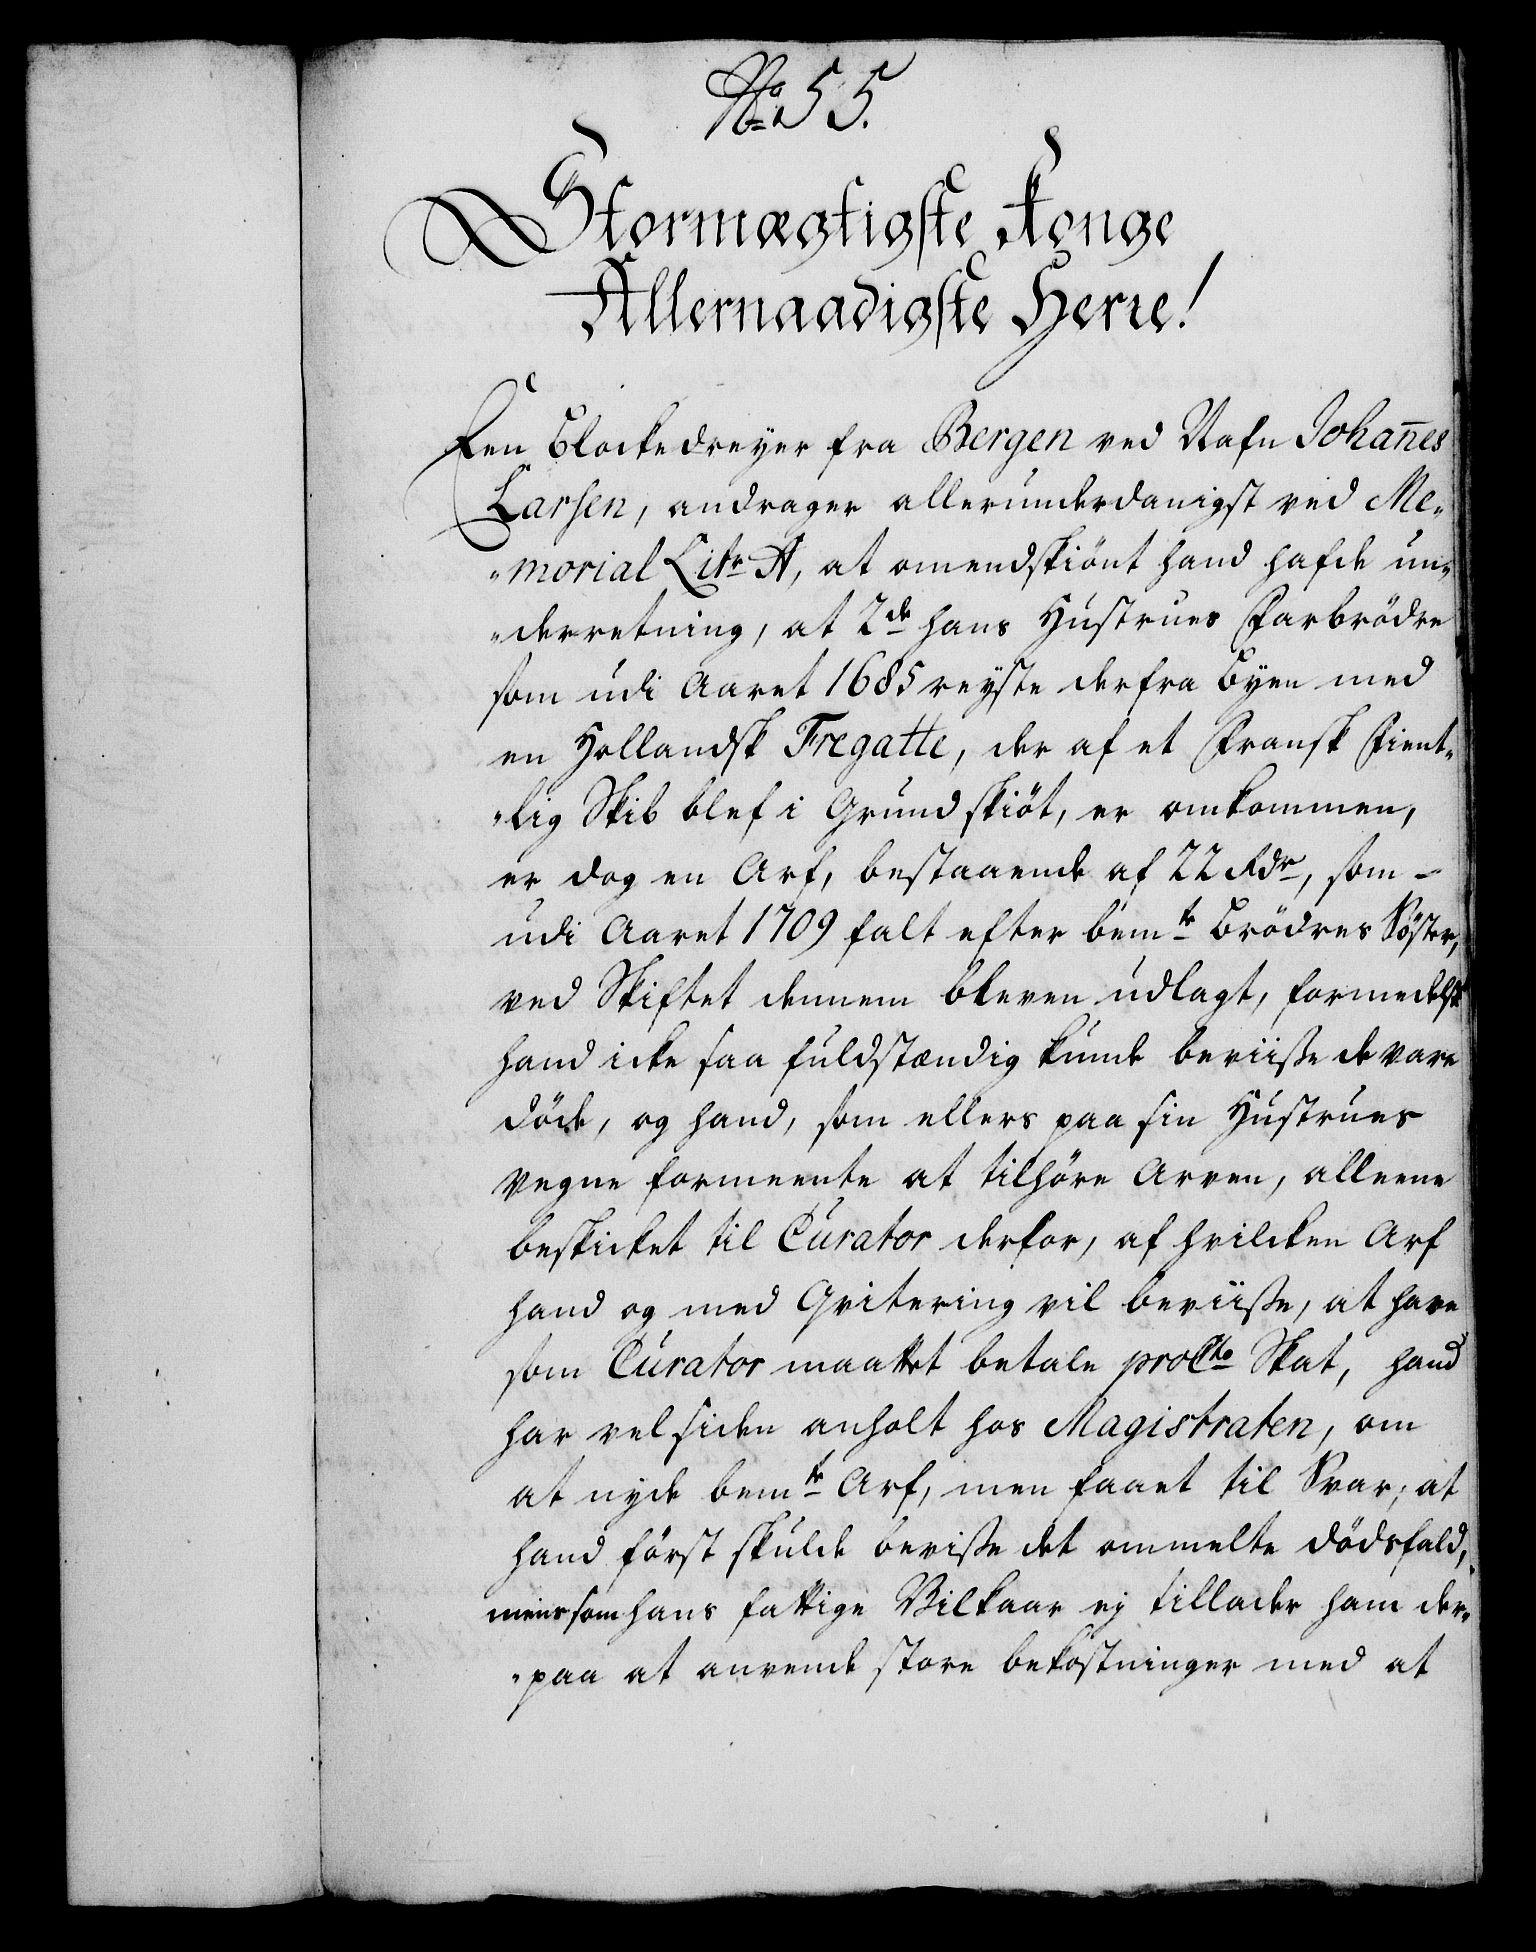 No 55.
Stormægtigste Konge
Allernaadigste Herre!
Een Blockedreyer fra Bergen ved Nafn Johan̄es
Larsen, andrager allerunderdanigst ved Me„
„morial Litr A, at omendskiönt hand hafde un„
„derretning, at 2de hans Hustrues Farbrödre
som udi Aaret 1685 reyste derfra Byen med
en Hollandsk Fregatte, der af et Fransk Fient„
„lig Skib blef i Grund skiöt, er omkommen,
er dog en Arf, bestaaende af 22 Rdr, som
udi Aaret 1709 falt efter bemte Brödres Söster,
ved Skiftet dennem bleven udlagt, formedelst
hand icke saa fuldstændig kunde beviisse de vare
döde, og hand, som ellers paa sin Hustrues
vegne formeente at tilhöre Arven, alleene
beskicket til Curator derfor, af hvilcken Arf
hand og med Qvitering vil beviisse, at have
som Curator maattet betale proCto Skat, hand
har vel siden anholt hos Magistraten, om
at nyde bemte Arf, men faaet til Svar; at
hand först skulde bevisse det ommelte dödsfald,
mens som hans fattige Vilkaar ej tillader ham der„
„paa at anvende store bekostninger med at